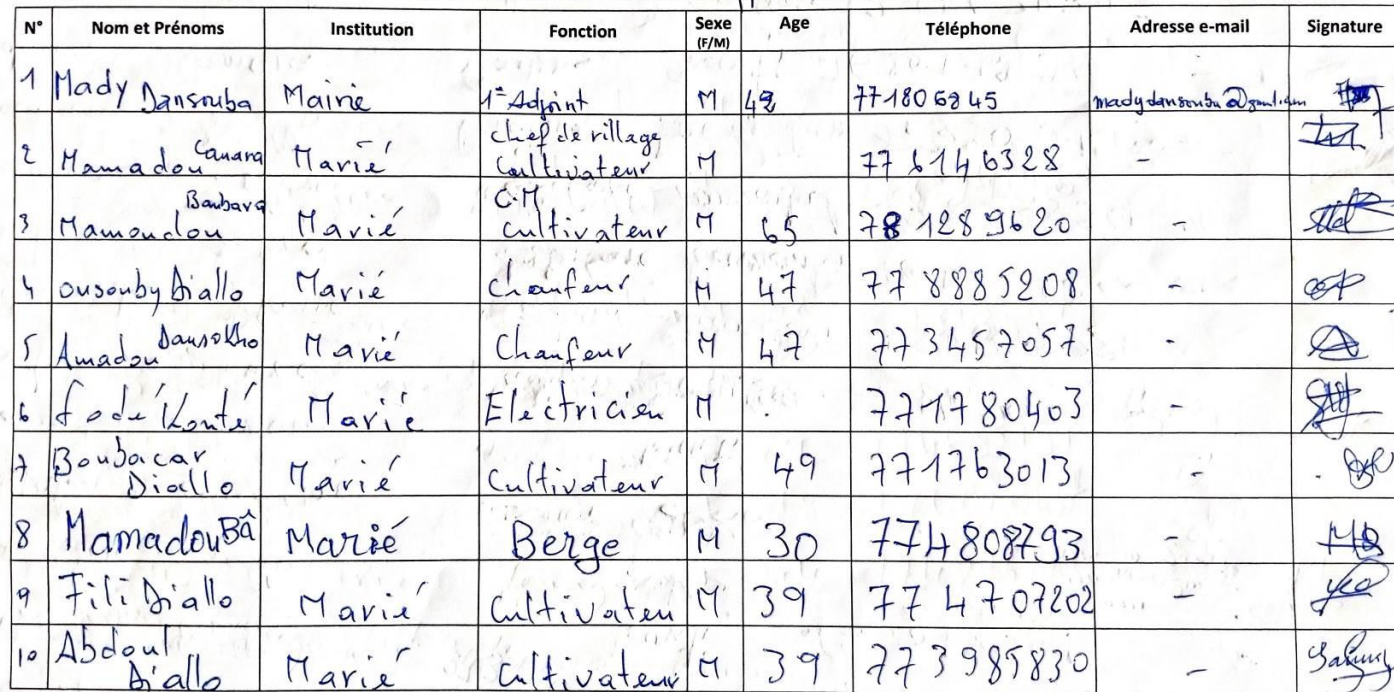 N° Nom et Prénoms Institution Fonction Sexe (F/M) Age Téléphone Adresse e-mail Signature
1 Mady Dansouba Mairie 1er Adjoint M 42 771806245
2 Mamadou Camara Marié chef de village Cultivateur M 776146328 -
3 Mamoudou Bambara Marié C.M cultivateur M 65 781289620 -
4 ousouby Diallo Marié Chaufeur M 47 778885208 -
5 Amadou Dansokho Marié Chaufeur M 47 773457057 -
6 fodé Konté Marié Electricien M 771780403 -
7 Boubacar Diallo Marié Cultivateur M 49 771763013 -
8 Mamadou Bâ Marié Berge M 30 774808793 -
9 Fili Diallo Marié Cultivateu M 39 774707202 -
10 Abdoul Diallo Marié Cultivateur M 39 773985830 -